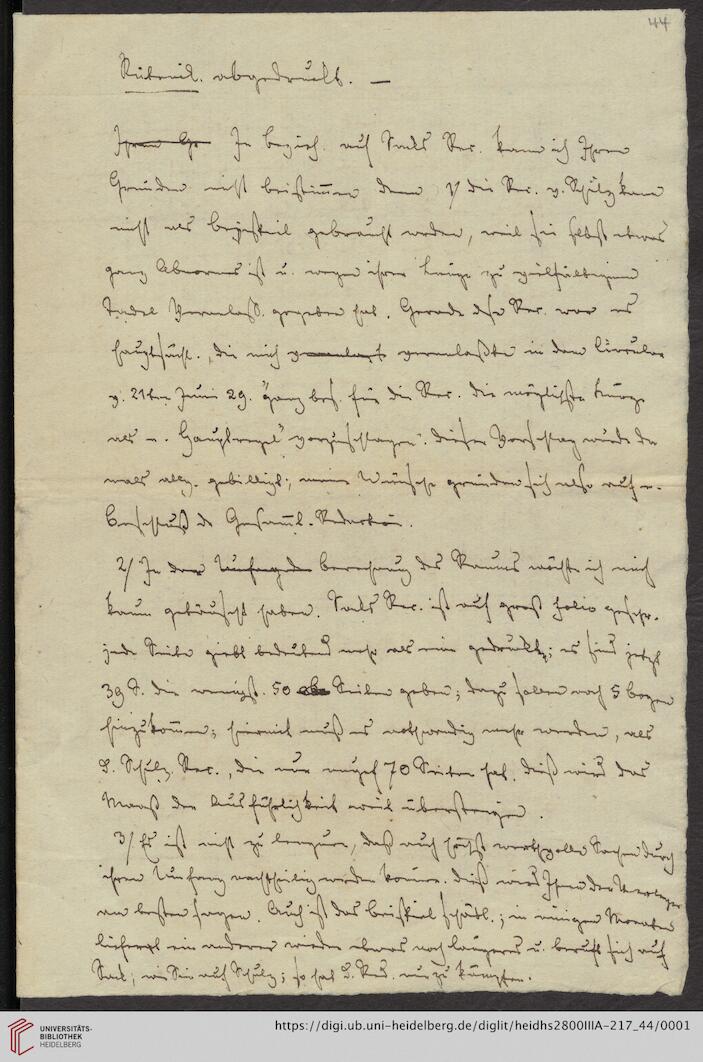 44
Rütenik. abgedruckt. —
In bezieh. auf Sacks Rec. kann ich Ihren
Gründen nicht beistimmen denn 1/ die Rec. v. Schulz kann
nicht als beispiel gebraucht werden, weil sie selbst etwas
ganz Abnormes ist u. wegen ihrer Länge zu vielfältigem
Tadel Veranlaß. gegeben hat. Gerade diese Rec. war es
hauptsächl., die mich veranlaßte in dem Circular
v. 21ten Juni 29. "ganz bes. für die Rec. die möglichste Kürze
als e. Hauptregel" vorzuschlagen. dieser Vorschlag wurde da
mals allg. gebilligt; meine Wünsche gründen sich also auf e.
Beschluß der Gesamt-Redaction.
2/ In der berechnung des Raums möchte ich mich
kaum getäuscht haben. Sacks Rec. ist auf groß folio geschr.
jede Seite giebt bedeutend mehr als eine gedruckte; es sind jetzt
39 S. die wenigst. 50 Seiten geben; dazu sollen noch 5 bogen
hinzukommen; hiermit muß es nothwendig mehr werden, als
d. Schulz. Rec., die nur 70 Seiten hat. dieß wird das
Maaß der Ausführlichkeit weit übersteigen.
3/ Es ist nicht zu leugnen, daß auch höchst werthvolle Sachen durch
ihren Umfang nachtheilig werden können. dieß wird Ihnen der Verleger
am besten sagen. Auch ist das beispiel schädl.; in einigen Monaten
liefert ein anderer wieder etwas noch längeres u. beruft sich auf
Sack, wie Sie auf Schulz; so hat d. Red. nur zu kämpfen.
UNIVERSITÄTS-
BIBLIOTHEK
HEIDELBERG
https://digi.ub.uni-heidelberg.de/diglit/heidhs2800IIIA-217_44/0001